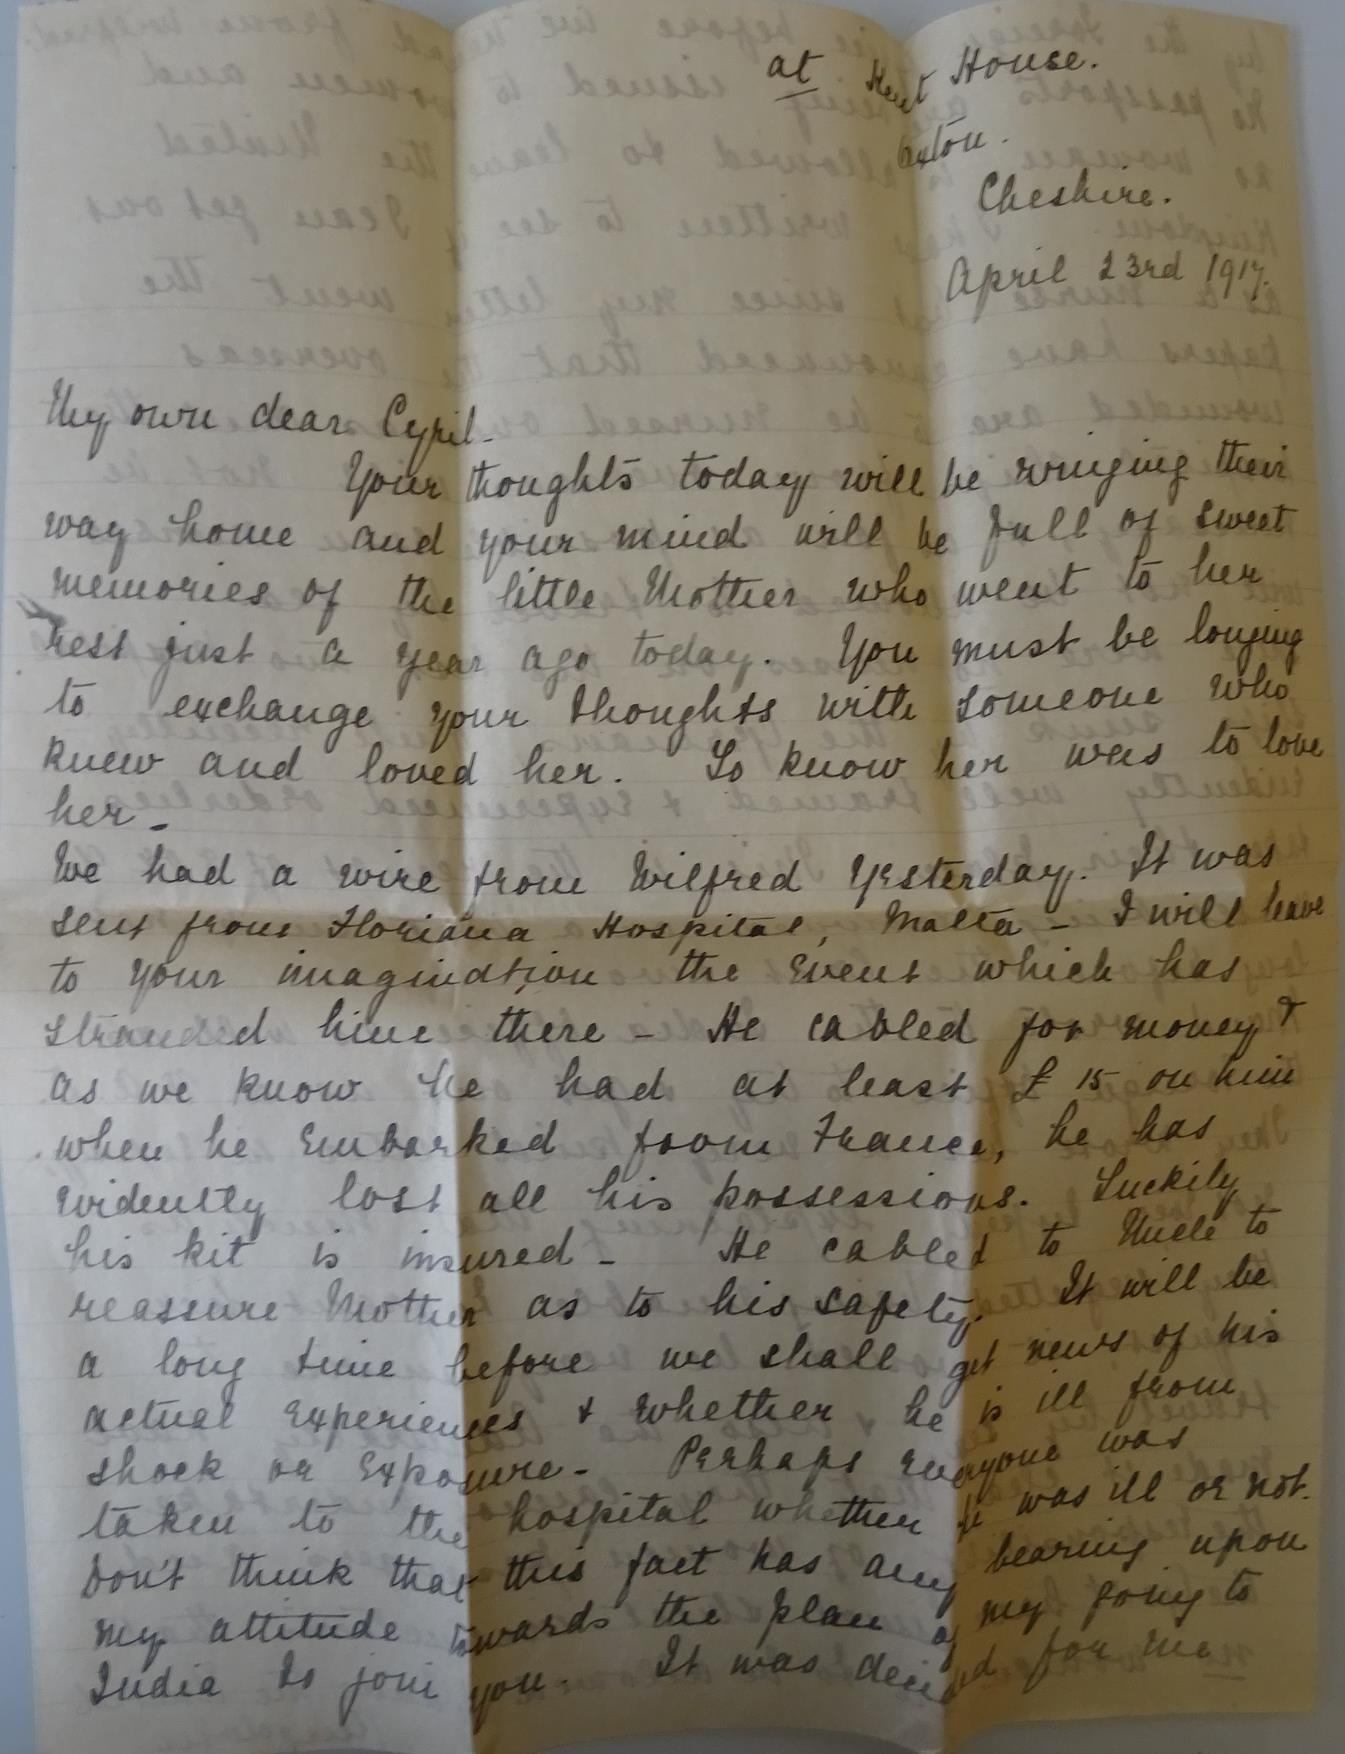 at Kent House.
Oxton.
Cheshire.
April 23rd 1917.
My own dear Cyril -
Your thoughts today will be winging their
way home and your mind will be full of sweet
memories of the little Mother who went to her
rest just a year ago today. You must be longing
to exchange your thoughts with someone who
knew and loved her. To know her was to love
her -
We had a wire from Wilfred yesterday. It was
sent from Floriana Hospital, Malta - I will leave
to your imagination the event which has
stranded him there - He cabled for money &
as we know he had at least £ 15 on him
when he embarked from France, he has
evidently lost all his possessions. Luckily
his kit is insured - He cabled to Uncle to
reassure Mother as to his safety. It will be
a long time before we shall get news of his
actual experiences & whether he is ill from
shock or exposure - Perhaps everyone was
taken to the hospital whether he was ill or not.
Don't think that this fact has any bearing upon
my attitude towards the plan of my going to
India to join you. It was decided for me